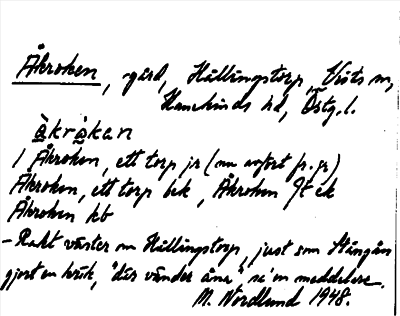 Åkroken, gård, Hållingstorp, Vists sn,
Hanekinds hd, Östg. l.
àkròkan
1 Åkroken, ett torp jr (nu avfört fr. jr)
Åkroken, ett torp bek, Åkroken Jt ek
Åkroken kb
– Rakt väster om Hållingstorp, just som Stångån
gjort en krök, "där vänder åna" sa' en meddelare.
M. Nordlund 1948.